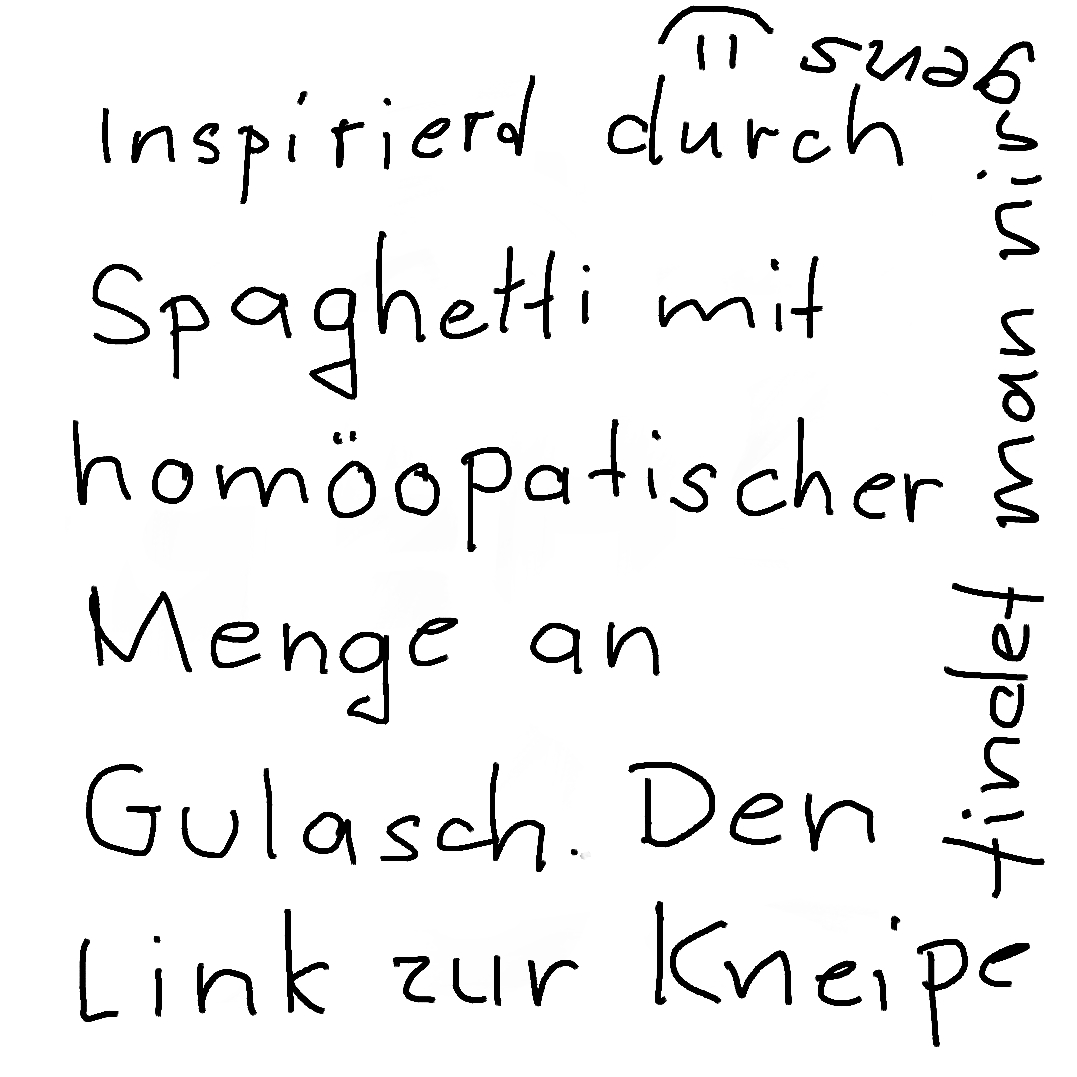 Inspirierd durch
Spaghetti mit
homöopatischer
Menge an
Gulasch. Den
Link zur Kneipe
findet man nir
gens